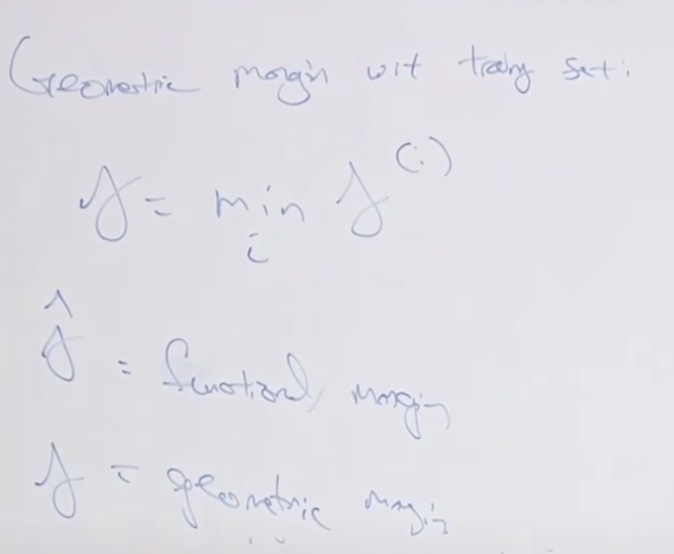 Geometric margin wrt training set:
γ = min γ^(i)
i
γ̂ = functional margin
γ = geometric margin